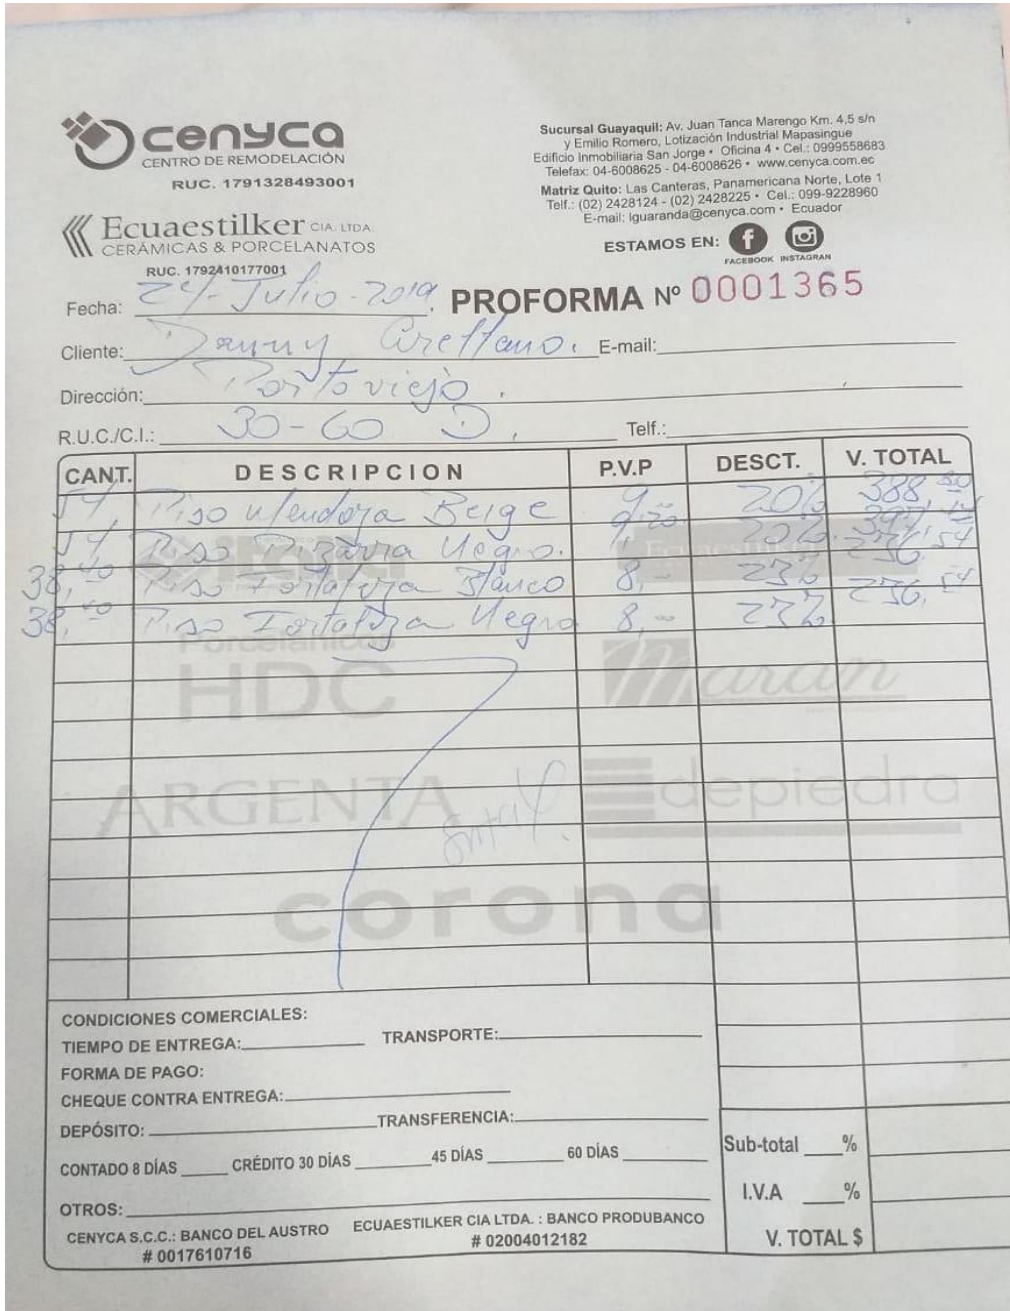 cenyca
CENTRO DE REMODELACIÓN
RUC. 1791328493001
Ecuaestilker CIA. LTDA.
CERÁMICAS & PORCELANATOS
RUC. 1792410177001
Sucursal Guayaquil: Av. Juan Tanca Marengo Km. 4,5 s/n
y Emilio Romero, Lotización Industrial Mapasingue
Edificio Inmobiliaria San Jorge • Oficina 4 • Cel.: 0999558683
Telefax: 04-6008625 - 04-6008626 • www.cenyca.com.ec
Matriz Quito: Las Canteras, Panamericana Norte, Lote 1
Telf.: (02) 2428124 - (02) 2428225 • Cel.: 099-9228960
E-mail: lguaranda@cenyca.com • Ecuador
ESTAMOS EN:
FACEBOOK INSTAGRAN
Fecha: Julio - 2019. PROFORMA Nº 0001365
Cliente: Danny Arellano. E-mail:
Dirección: Portoviejo.
R.U.C./C.I.: 30-60 D. Telf.:
CANT. DESCRIPCION P.V.P DESCT. V. TOTAL
54 Piso Mendoza Beige 9, 20% 388,80
54 Piso Pizarra Negro. 9,20 20%. 397,44
38,40 Piso Fortaleza Blanco 8,- 23% 236,54
38,40 Piso Fortaleza Negro 8,- 23% 236,54
Porcelanicos
HDC
Maran
ARGENTA
depiedra
corona
CONDICIONES COMERCIALES:
TIEMPO DE ENTREGA: TRANSPORTE:
FORMA DE PAGO:
CHEQUE CONTRA ENTREGA:
DEPÓSITO: TRANSFERENCIA:
CONTADO 8 DÍAS CRÉDITO 30 DÍAS 45 DÍAS 60 DÍAS
OTROS:
CENYCA S.C.C.: BANCO DEL AUSTRO
# 0017610716
ECUAESTILKER CIA LTDA. : BANCO PRODUBANCO
# 02004012182
Sub-total %
I.V.A %
V. TOTAL $